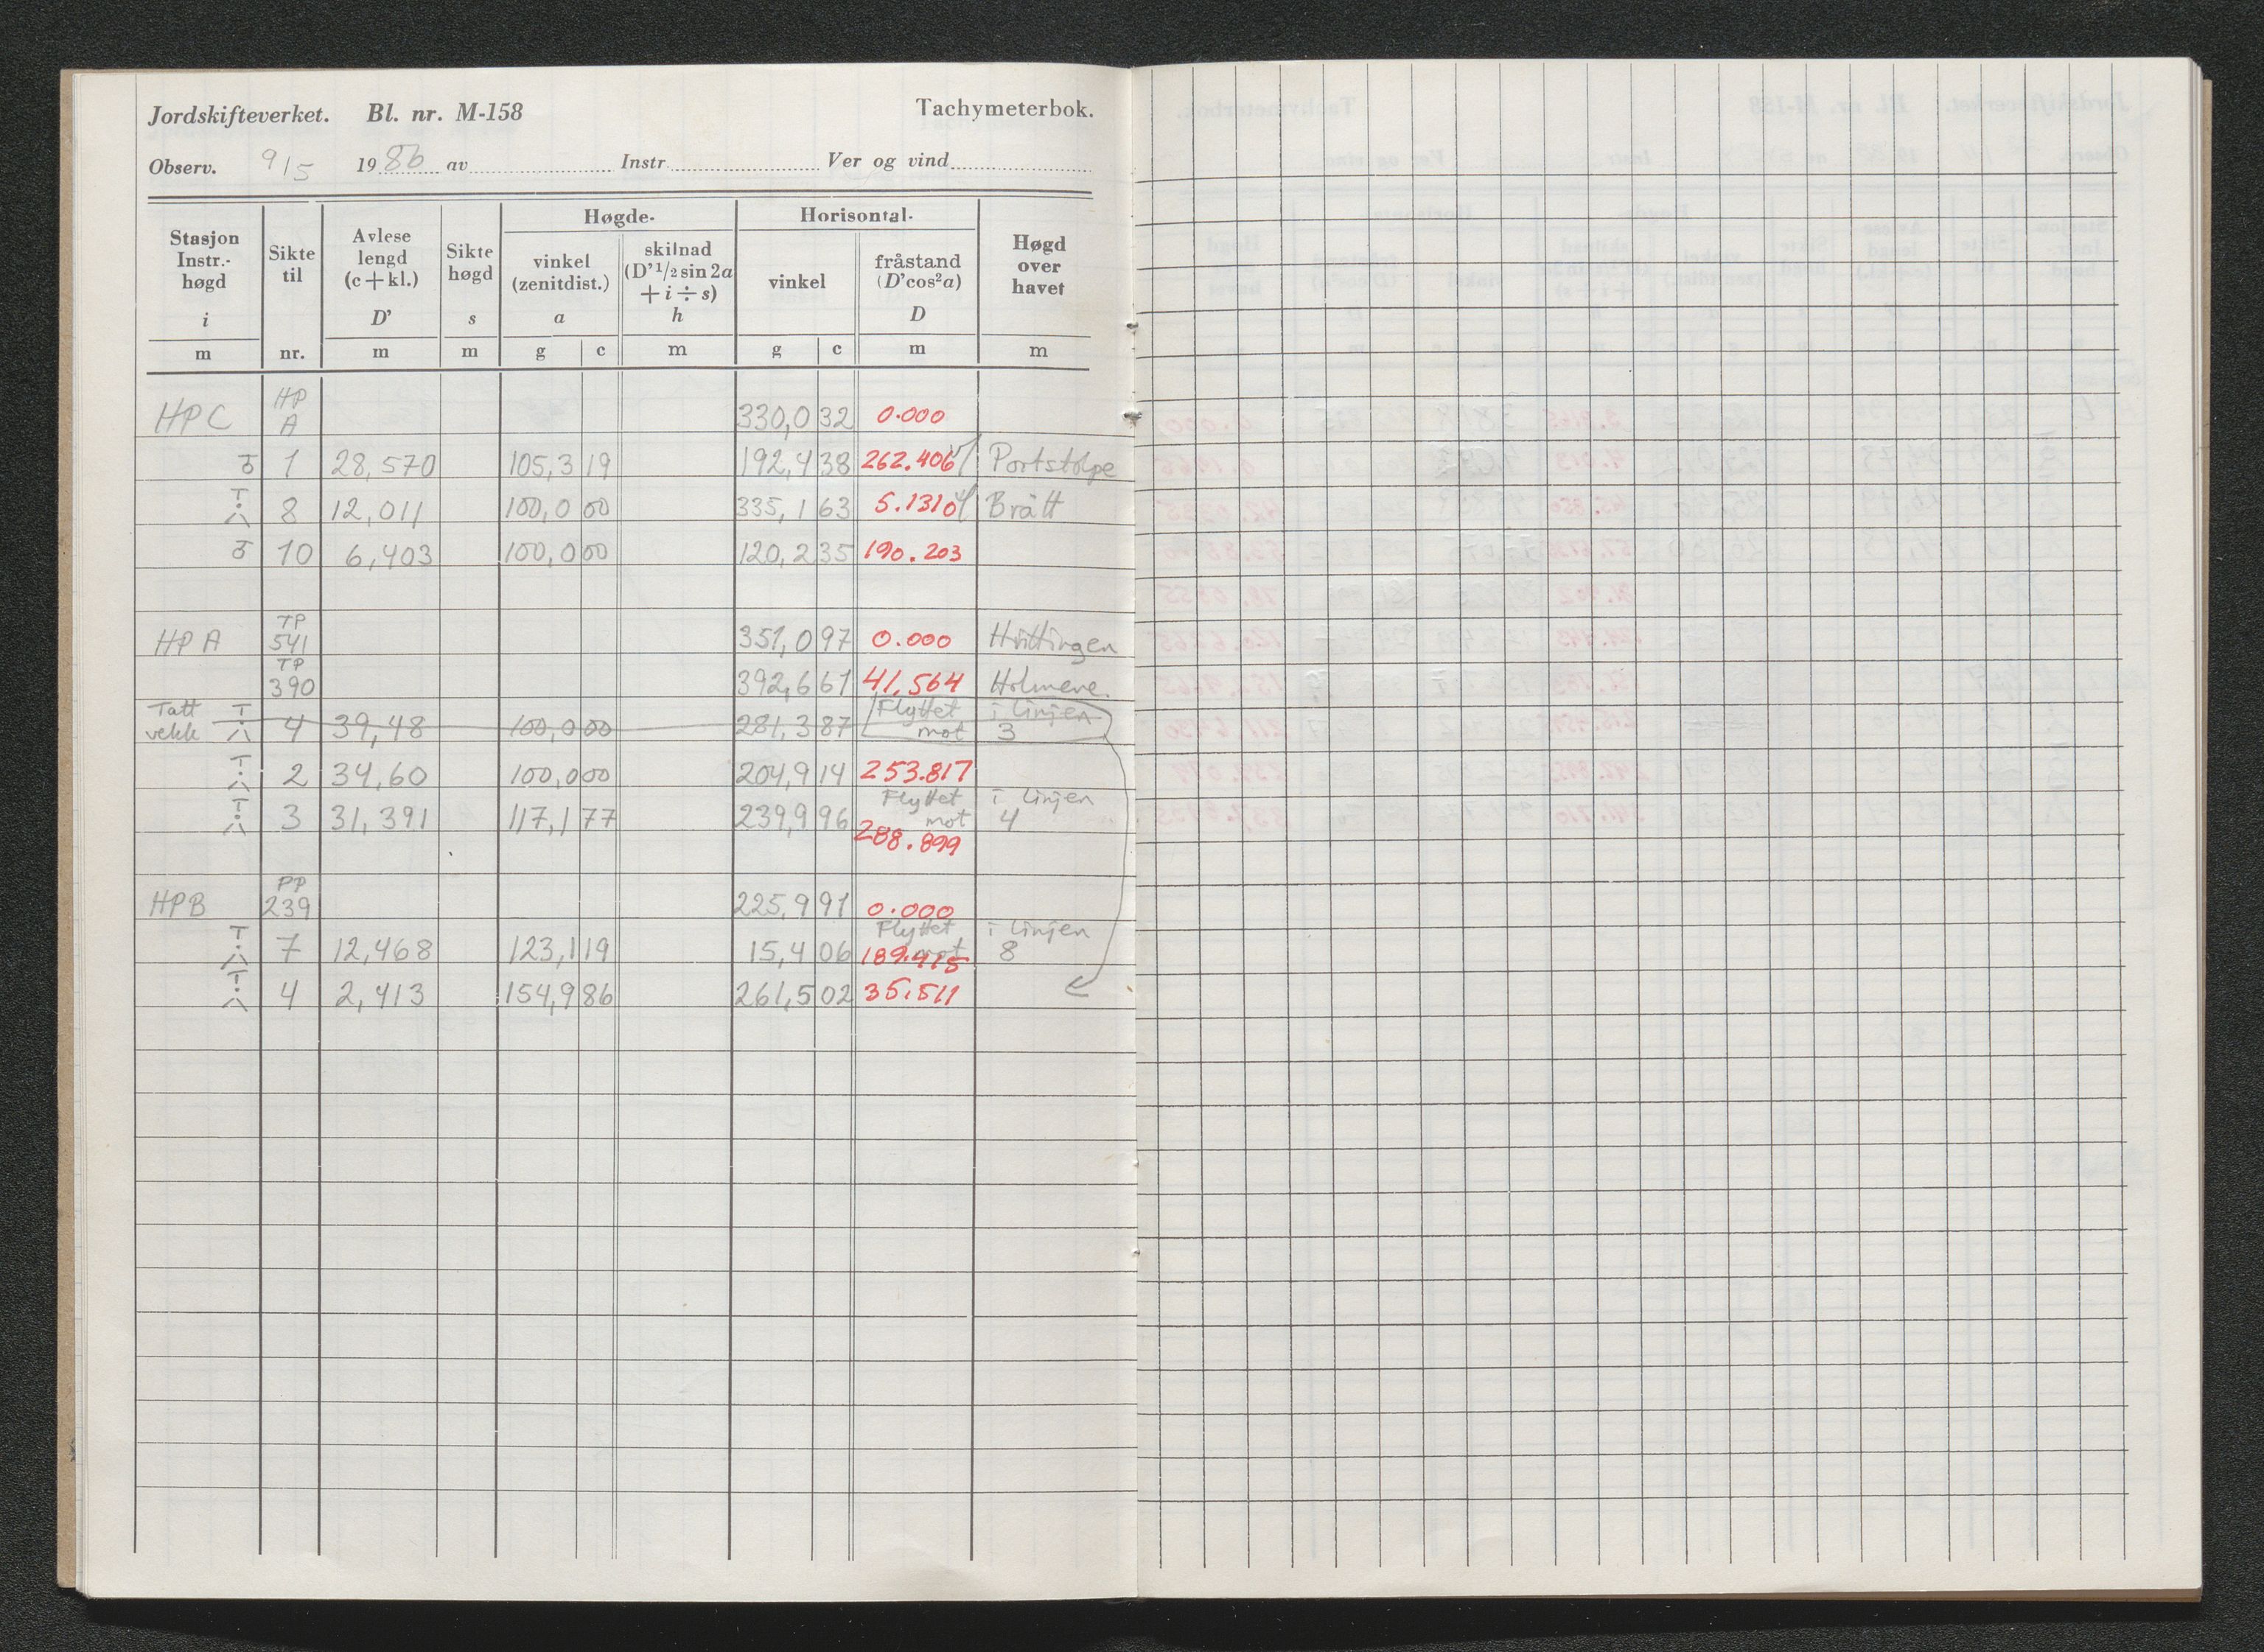 Jordskifteverket. Bl. nr. M-158 Tachymeterbok.
Observ. 9/5 1986 av Instr. Ver og vind
Stasjon Instr.- høgd i m
Sikte til nr.
Avlese lengd (c + kl.) D' m
Sikte høgd s m
Høgde-
vinkel (zenitdist.) a g c
skilnad (D' 1/2 sin 2a + i ÷ s) h m
Horisontal-
vinkel g c
fråstand (D' cos²a) D m
Høgd over havet m
HP C HP A 330,0 32 0.000
1 28,570 105,3 19 192,4 38 262.406 Portstolpe
8 12,011 100,0 00 335,1 63 5.1310 Brått
10 6,403 100,0 00 120,2 35 190.203
HP A TP 541 351,0 97 0.000 Hvittingen
TP 390 392,6 61 41.564 Holmene.
Tatt vekk 4 39,48 100,0 00 281,3 87 Flyttet mot i linjen 3
2 34,60 100,0 00 204,9 14 253.817
3 31,391 117,1 77 239,9 96 Flyttet mot i linjen 4
288.899
HPB PP 239 225,9 91 0.000
7 12,468 123,1 19 15,4 06 Flyttet mot i linjen 8
189.415
4 2,413 154,9 86 261,5 02 35.511